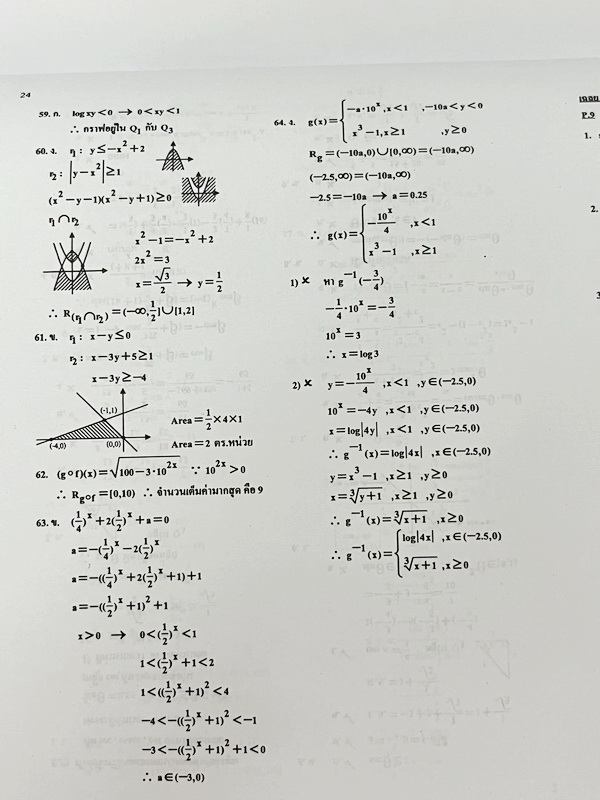 24
59. ก. log xy < 0 → 0 < xy < 1
∴ กราฟอยู่ใน Q₁ กับ Q₃
60. ง. r₁ : y ≤ −x² + 2
r₂ : |y − x²| ≥ 1
(x² − y − 1)(x² − y + 1) ≥ 0
r₁ ∩ r₂
x² − 1 = −x² + 2
2x² = 3
x = √3/2 → y = 1/2
∴ R(r₁ ∩ r₂) = (−∞, 1/2] ∪ [1,2]
61. ข. r₁ : x − y ≤ 0
r₂ : x − 3y + 5 ≥ 1
x − 3y ≥ −4
(−1,1)
(−4,0)
(0,0)
Area = 1/2 × 4 × 1
Area = 2 ตร.หน่วย
62. (gof)(x) = √(100 − 3·10^(2x)) ∵ 10^(2x) > 0
∴ R_gof = [0,10) ∴ จำนวนเต็มค่ามากสุด คือ 9
63. ข. (1/4)^x + 2(1/2)^x + a = 0
a = −(1/4)^x − 2(1/2)^x
a = −((1/4)^x + 2(1/2)^x + 1) + 1
a = −((1/2)^x + 1)² + 1
x > 0 → 0 < (1/2)^x < 1
1 < (1/2)^x + 1 < 2
1 < ((1/2)^x + 1)² < 4
−4 < −((1/2)^x + 1)² < −1
−3 < −((1/2)^x + 1)² + 1 < 0
∴ a ∈ (−3,0)
64. ง. g(x) = { −a·10^x , x < 1 , −10a < y < 0
x³ − 1, x ≥ 1 , y ≥ 0
R_g = (−10a,0) ∪ [0,∞) = (−10a,∞)
(−2.5,∞) = (−10a,∞)
−2.5 = −10a → a = 0.25
∴ g(x) = { −10^x/4 , x < 1
x³ − 1 , x ≥ 1
1) × หา g⁻¹(−3/4)
−1/4·10^x = −3/4
10^x = 3
∴ x = log3
2) × y = −10^x/4 , x < 1 , y ∈ (−2.5,0)
10^x = −4y , x < 1 , y ∈ (−2.5,0)
x = log|4y| , x < 1 , y ∈ (−2.5,0)
∴ g⁻¹(x) = log|4x| , x ∈ (−2.5,0)
y = x³ − 1 , x ≥ 1 , y ≥ 0
x = ∛(y + 1) , x ≥ 1 , y ≥ 0
∴ g⁻¹(x) = ∛(x + 1) , x ≥ 0
∴ g⁻¹(x) = { log|4x| , x ∈ (−2.5,0)
∛(x + 1) , x ≥ 0
เฉลย
P.9
1.
2.
3